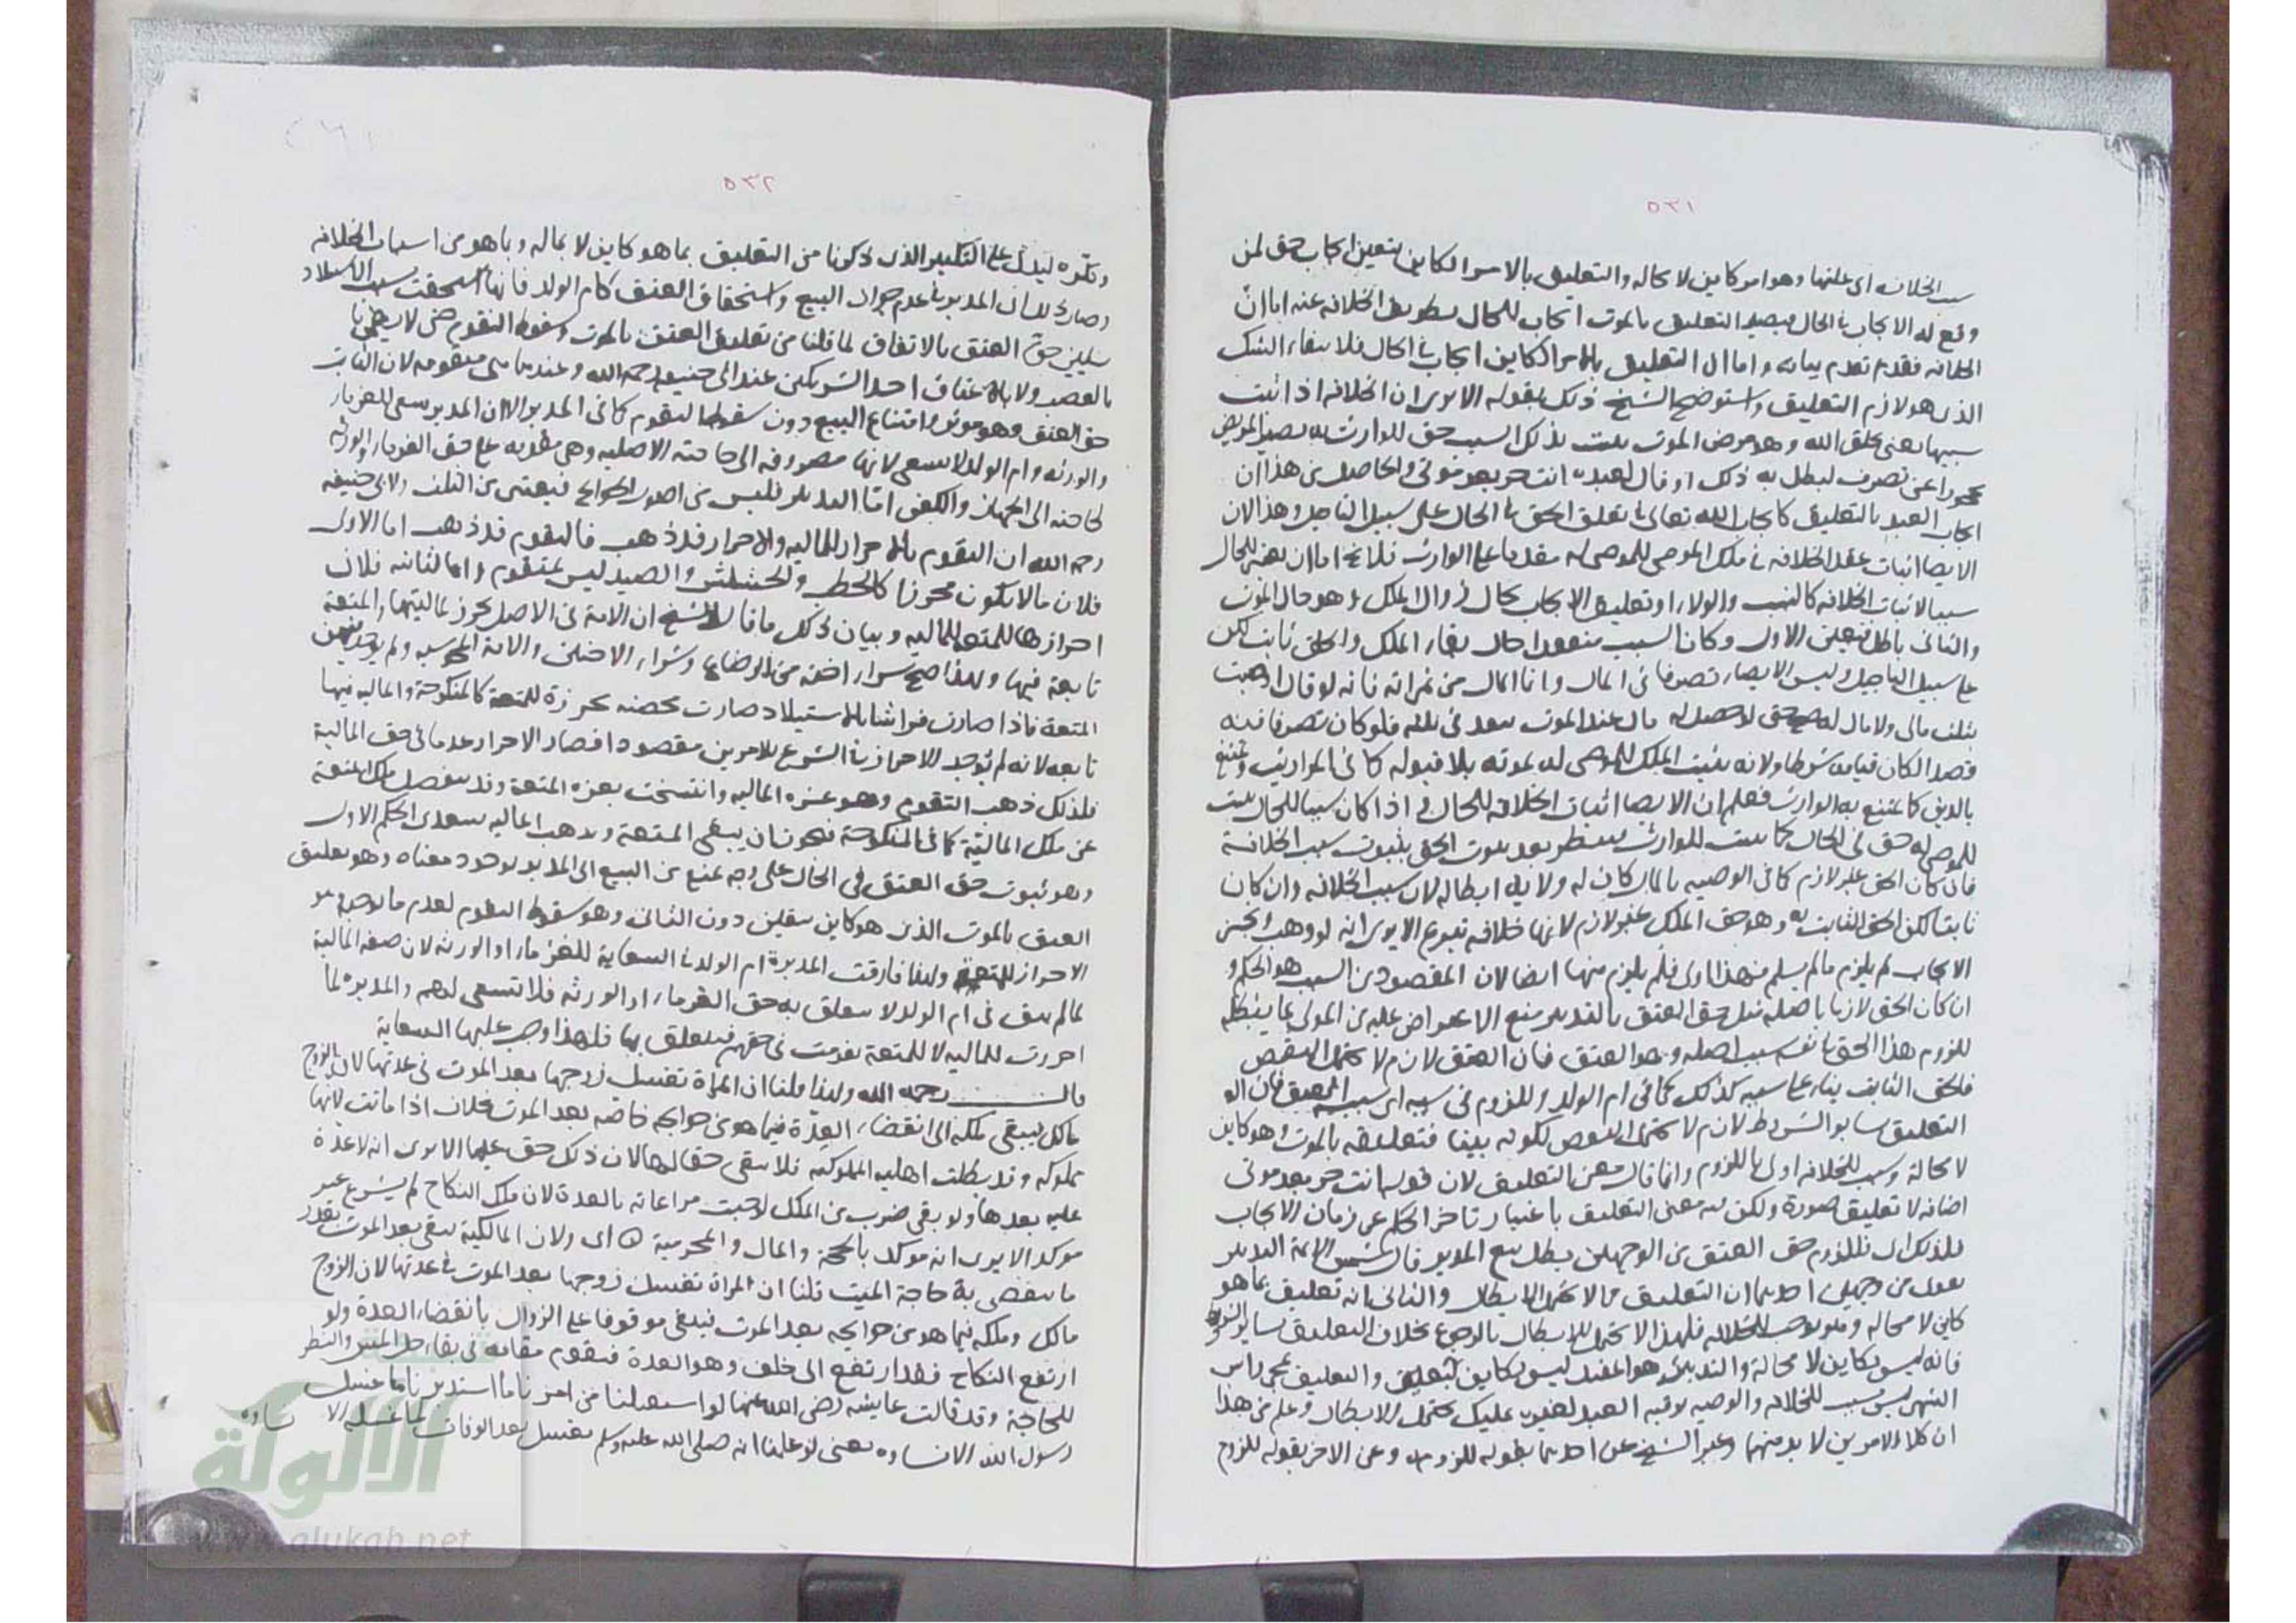 ٥٣١
سبب الخلافة اى علتها وهو امر كاين لا محاله والتعليق بالامر الكاين يتعين ايجاب حق لمن
وقع له الايجاب فى الحال فيصير التعليق بالموت ايجاب للحال بطريق الخلافة عنه اما ان
الخلافه فقد تقدم بيانه واما ان التعليق بالامر الكاين ايجاب فى الحال فلانتفاء الشك
الذى هو لازم التعليق واستوضح الشيخ ذلك بقوله الا يرى ان الخلافه اذا ثبت
سببها يعنى بخلق الله وهو مرض الموت يثبت بذلك السبب حق للوارث به يصير المريض
محجورا عن تصرف يبطل به ذلك او قال لعبده انت حر بعد موتى والحاصل من هذا ان
ايجاب العبد بالتعليق كايجاب الله تعالى فى تعلق الحق فى الحال على سبيل التاجيل وهذا لان
الايصا اثبات عقد الخلافه فى ملك الموصى للموصى له مقدما على الوارث فلا يخ اما ان يعتبر للحال
سببا لاثبات الخلافه كالنسب والولاء او تعليق الايجاب بحال زوال الملك وهو حال الموت
والثانى باطل فتعين الاول وكان السبب منعقدا حال بقاء الملك والحق ثابت لكن
على سبيل التاجيل وليس الايصاء تصرفا فى المال وانما المال من ثمراته فانه لو قال اوصيت
بثلث مالى ولا مال له صح حتى لو حصل له مال عند الموت ينعقد فى ثلثه فلو كان تصرفا فيه
قصدا لكان قيامه شرطا ولانه يثبت الملك للموصى له بموته بلا قبوله كما فى المواريث ويمتنع
بالدين كما يمتنع به الوارث فعلم ان الايصا اثبات الخلافه للحال فاذا كان سببا للحال يثبت
للموصى له حق فى الحال كما يثبت للوارث فينظر بعد ثبوت الحق بثبوت سبب الخلافة
فان كان الحق غير لازم كما فى الوصيه بالمال كان له ولاية ابطاله لان سبب الخلافه وان كان
ثابتا لكن الحق الثابت به وهو حق الملك غير لازم لانها خلافه تبرع الا يرى انه لو وهب وانجز
الايجاب لم يلزم ما لم يسلم فهذا اولى فلم يلزم منها ايضا لان المقصود من السبب هو الحكم و
ان كان الحق لازما باصله مثل حق العتق بالتدبير منع الاعتراض عليه من المولى بما يبطله
للزوم هذا الحق فى نفسه بسبب اصله وهو العتق فان العتق لازم لا يحتمل النقض
فلحق الثابت بناء على سببه كذلك كما فى ام الولد وللزوم فى سببه اى سبب العتق فان
التعليق بساير الشروط لازم لا يحتمل النقض لكونه يمينا فتعليقه بالموت وهو كاين
لا محالة وسبب للخلافه اولى باللزوم وانما قال معنى التعليق لان قوله انت حر بعد موتى
اضافه لا تعليق صورة ولكن فيه معنى التعليق باعتبار تاخر الحكم عن زمان الايجاب
فلذلك اى فللزوم حق العتق من الوجهين بطل بيع المدبر قال شمس الائمة التدبير
يقوى من وجهين احدهما ان التعليق مما لا يحتمل الابطال والثانى انه تعليق بما هو
كاين لا محاله وهو موجب للخلافه فلهذا لا يحتمل الابطال بالرجوع بخلاف التعليق بساير الشروط
فانه ليس بكاين لا محالة والتدبير هو المقيد ليس بكاين والتعليق بمجى راس
الشهر ليس بسبب للخلافه والوصيه برقبه العبد لغيره تمليك يحتمل الابطال وعلم من هذا
ان كلا الامرين لا بد منهما وعبر الشيخ عن احدهما بقوله للزومه وعن الاخر بقوله للزوم
٥٣٢
وتكره ليدل على التكبير الذى ذكرنا من التعليق بما هو كاين لا محاله وبما هو من اسباب الخلافه
وصار ذلك اى المدبر فى عدم جواز البيع واستحقاق العتق كام الولد فانها استحقت بسبب الاستيلاد
شيئين حق العتق بالاتفاق لما قلنا من تعليق العتق بالموت وسقوط التقوم حتى لا يضمن
بالغصب ولا باعتاق احد الشريكين عند ابى حنيفه رحمه الله وعندهما هى متقومه لان الثابت
حق العتق وهو موثر فى امتناع البيع دون سقوط التقوم كما فى المدبر الا ان المدبر يسعى للغرماء
والورثه وام الولد لا تسعى لانها مصروفه الى حاجته الاصليه وهى مقدمه على حق الغرماء والورثه
كحاجته الى الجهاز والكفن اما التدبير فليس من اصول حوايجه فيعتبر من الثلث ولابى حنيفه
رحمه الله ان التقوم بالاحراز للماليه والاحراز قد ذهب فالتقوم قد ذهب اما الاول
فلان ما لا يكون محرزا كالحطب والحشيش والصيد ليس بمتقوم واما الثانيه فلان
احرازها للمتعه لا للماليه وبيان ذلك ما قال الشيخ ان الامة فى الاصل تحرز لماليتها والمتعة
تابعة فيها ولهذا صح شراء اخته من الرضاع وشراء الاختين والامة المجوسيه ولم يوجد فيهن
المتعة فاذا صارت فراشا بالاستيلاد صارت محصنه محرزة للمتعة كالمنكوحة والماليه فيها
تابعه لانه لم يوجد الاحراز فى الشرع للامرين مقصودا فصار الاحراز عدما فى حق المالية
فلذلك ذهب التقوم وهو عزه الماليه وانتسخت بعزه المتعة وقد ينفصل ملك المتعة
عن ملك المالية كما فى المنكوحة فيجوز ان يبقى المتعة ويذهب الماليه فتعدى الحكم الاول
وهو ثبوت حق العتق فى الحال على وجه يمنع من البيع الى المدبر لوجود معناه وهو تعليق
العتق بالموت الذى هو كاين بيقين دون الثانى وهو سقوط التقوم لعدم ما يوجبه وهو
الاحراز للمتعة ولهذا فارقت المدبرة ام الولد فى السعاية للغرماء او الورثه لان صفه المالية
لما لم يبق فى ام الولد لا يتعلق به حق الغرماء او الورثه فلا تسعى لهم والمدبره لما
احرزت للماليه لا للمتعة تقومت فى حقهم فيتعلق بها فلهذا وجب عليها السعاية
قال رحمه الله ولهذا قلنا ان المراة تغسل زوجها بعد الموت فى عدتها لان الزوج
مالك فيبقى ملكه الى انقضاء العدة فيما هو من حوايجه خاصه بعد الموت بخلاف اذا ماتت لانها
مملوكه وقد بطلت اهليه المملوكيه فلا يبقى حقا لها لان ذلك حق عليها الا يرى انه لا عدة
عليه بعدها ولو بقى ضرب من الملك لوجبت مراعاته بالعدة لان ملك النكاح لم يشرع غير
موكد الا يرى انه موكد بالحجة والمال والمحرمية اى ولان المالكية تبقى بعد الموت بقدر
ما ينقضى به حاجة الميت قلنا ان المراة تغسل زوجها بعد الموت فى عدتها لان الزوج
مالك وملكه فيما هو من حوايجه بعد الموت فيبقى موقوفا على الزوال بانقضاء العدة ولو
ارتفع النكاح فقد ارتفع الى خلف وهو العدة فيقوم مقامه فى بقاء حل المس والنظر
للحاجة وقد قالت عايشه رضى الله عنها لو استقبلنا من امرنا ما استدبرنا ما غسل
رسول الله الا نساؤه يعنى لو علمنا انه صلى الله عليه وسلم يغتسل بعد الوفات لما غسله الا نساوه
شبكة
الألوكة
www.alukah.net